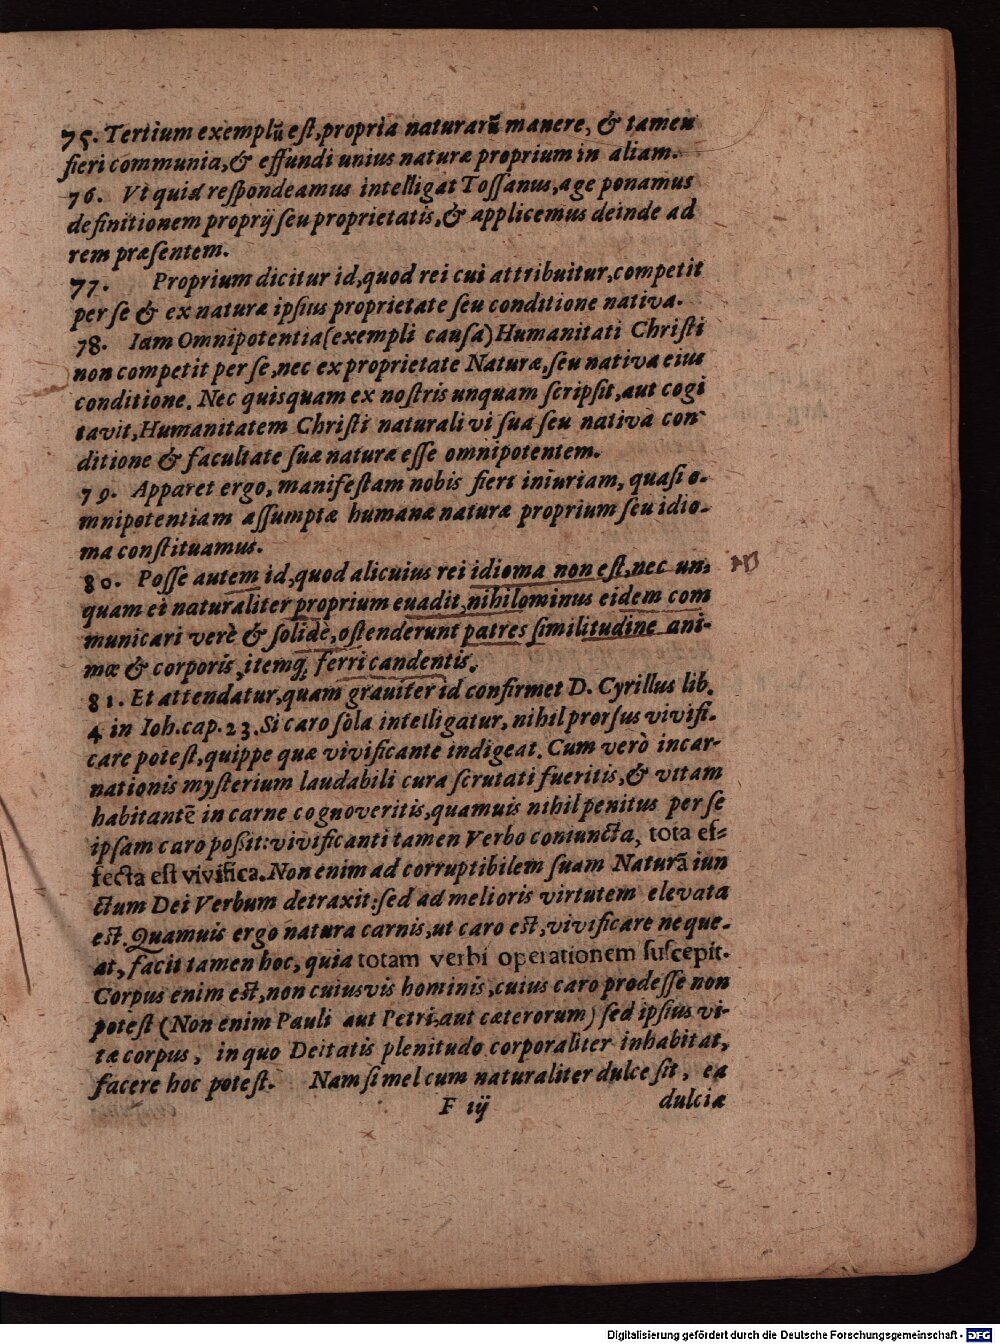 75. Tertium exemplū est, propria naturarū manere, & tamen
fieri communia, & effundi unius naturæ proprium in aliam.
76. Vt quid respondeamus intelligat Tossanus, age ponamus
definitionem proprij seu proprietatis, & applicemus deinde ad
rem præsentem.
77. Proprium dicitur id, quod rei cui attribuitur, competit
per se & ex natura ipsius proprietate seu conditione nativa.
78. Iam Omnipotentia (exempli causa) Humanitati Christi
non competit per se, nec ex proprietate Naturæ, seu nativa eius
conditione. Nec quisquam ex nostris unquam scripsit, aut cogi
tavit, Humanitatem Christi naturali vi sua seu nativa con
ditione & facultate suæ naturæ esse omnipotentem.
79. Apparet ergo, manifestam nobis fieri iniuriam, quasi o-
mnipotentiam assumptæ humanæ naturæ proprium seu idio-
ma constituamus.
80. Posse autem id, quod alicuius rei idioma non est, nec un-
quam ei naturaliter proprium euadit, nihilominus eidem com
municari verè & solidè, ostenderunt patres similitudine ani-
mæ & corporis, itemq; ferri candentis.
81. Et attendatur, quam graviter id confirmet D. Cyrillus lib.
4 in Ioh. cap. 23. Si caro sola intelligatur, nihil prorsus vivifi-
care potest, quippe quæ vivificante indigeat. Cum verò incar-
nationis mysterium laudabili cura scrutati fueritis, & vitam
habitantē in carne cognoveritis, quamuis nihil penitus per se
ipsam caro possit: vivificanti tamen Verbo coniuncta, tota ef-
fecta est vivifica. Non enim ad corruptibilem suam Naturā iun
ctum Dei Verbum detraxit: sed ad melioris virtutem elevata
est. Quamuis ergo natura carnis, ut caro est, vivificare neque-
at, facit tamen hoc, quia totam verbi operationem suscepit.
Corpus enim est, non cuiusvis hominis, cuius caro prodesse non
potest (Non enim Pauli aut Petri, aut cæterorum) sed ipsius vi-
tæ corpus, in quo Deitatis plenitudo corporaliter inhabitat,
facere hoc potest. Nam si mel cum naturaliter dulce sit, ea
F iij dulciæ
Digitalisierung gefördert durch die Deutsche Forschungsgemeinschaft - DFG